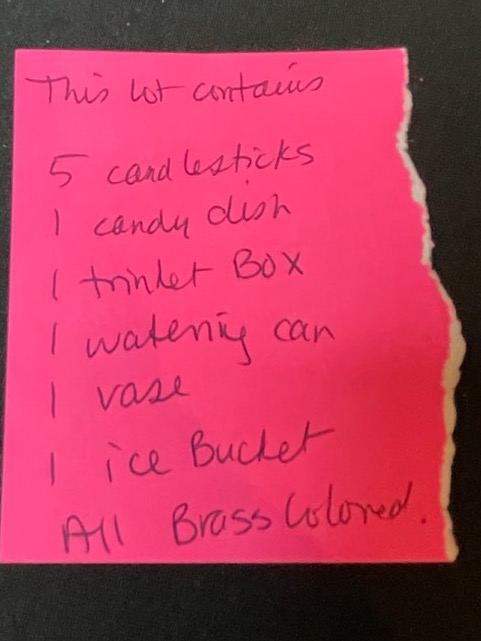 This lot contains
5 candlesticks
1 candy dish
1 trinket Box
1 watering can
1 vase
1 ice Bucket
All Brass Colored.